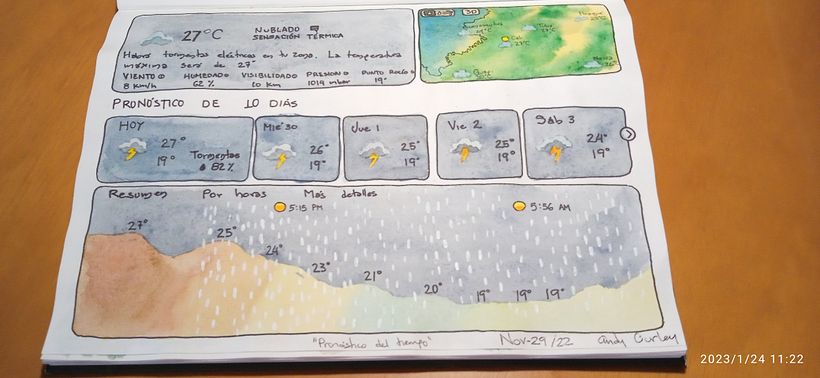 27°C
NUBLADO
SENSACIÓN TÉRMICA
Habrá tormentas eléctricas en tu zona. La temperatura
máxima será de 27°
VIENTO HUMEDAD VISIBILIDAD PRESIÓN PUNTO ROCÍO
8 km/h 62% 10 Km 1014 mbar 19°
3D
Cali
27°C
PRONÓSTICO DE 10 DÍAS
HOY
27°
19°
Tormentas
82%
Mie 30
26°
19°
Jue 1
25°
19°
Vie 2
25°
19°
Sáb 3
24°
19°
Resumen Por horas Más detalles
5:15 PM
5:56 AM
27°
25°
24°
23°
21°
20°
19°
19°
19°
"Pronóstico del tiempo"
Nov-29/22
Andy Gurley
2023/1/24 11:22